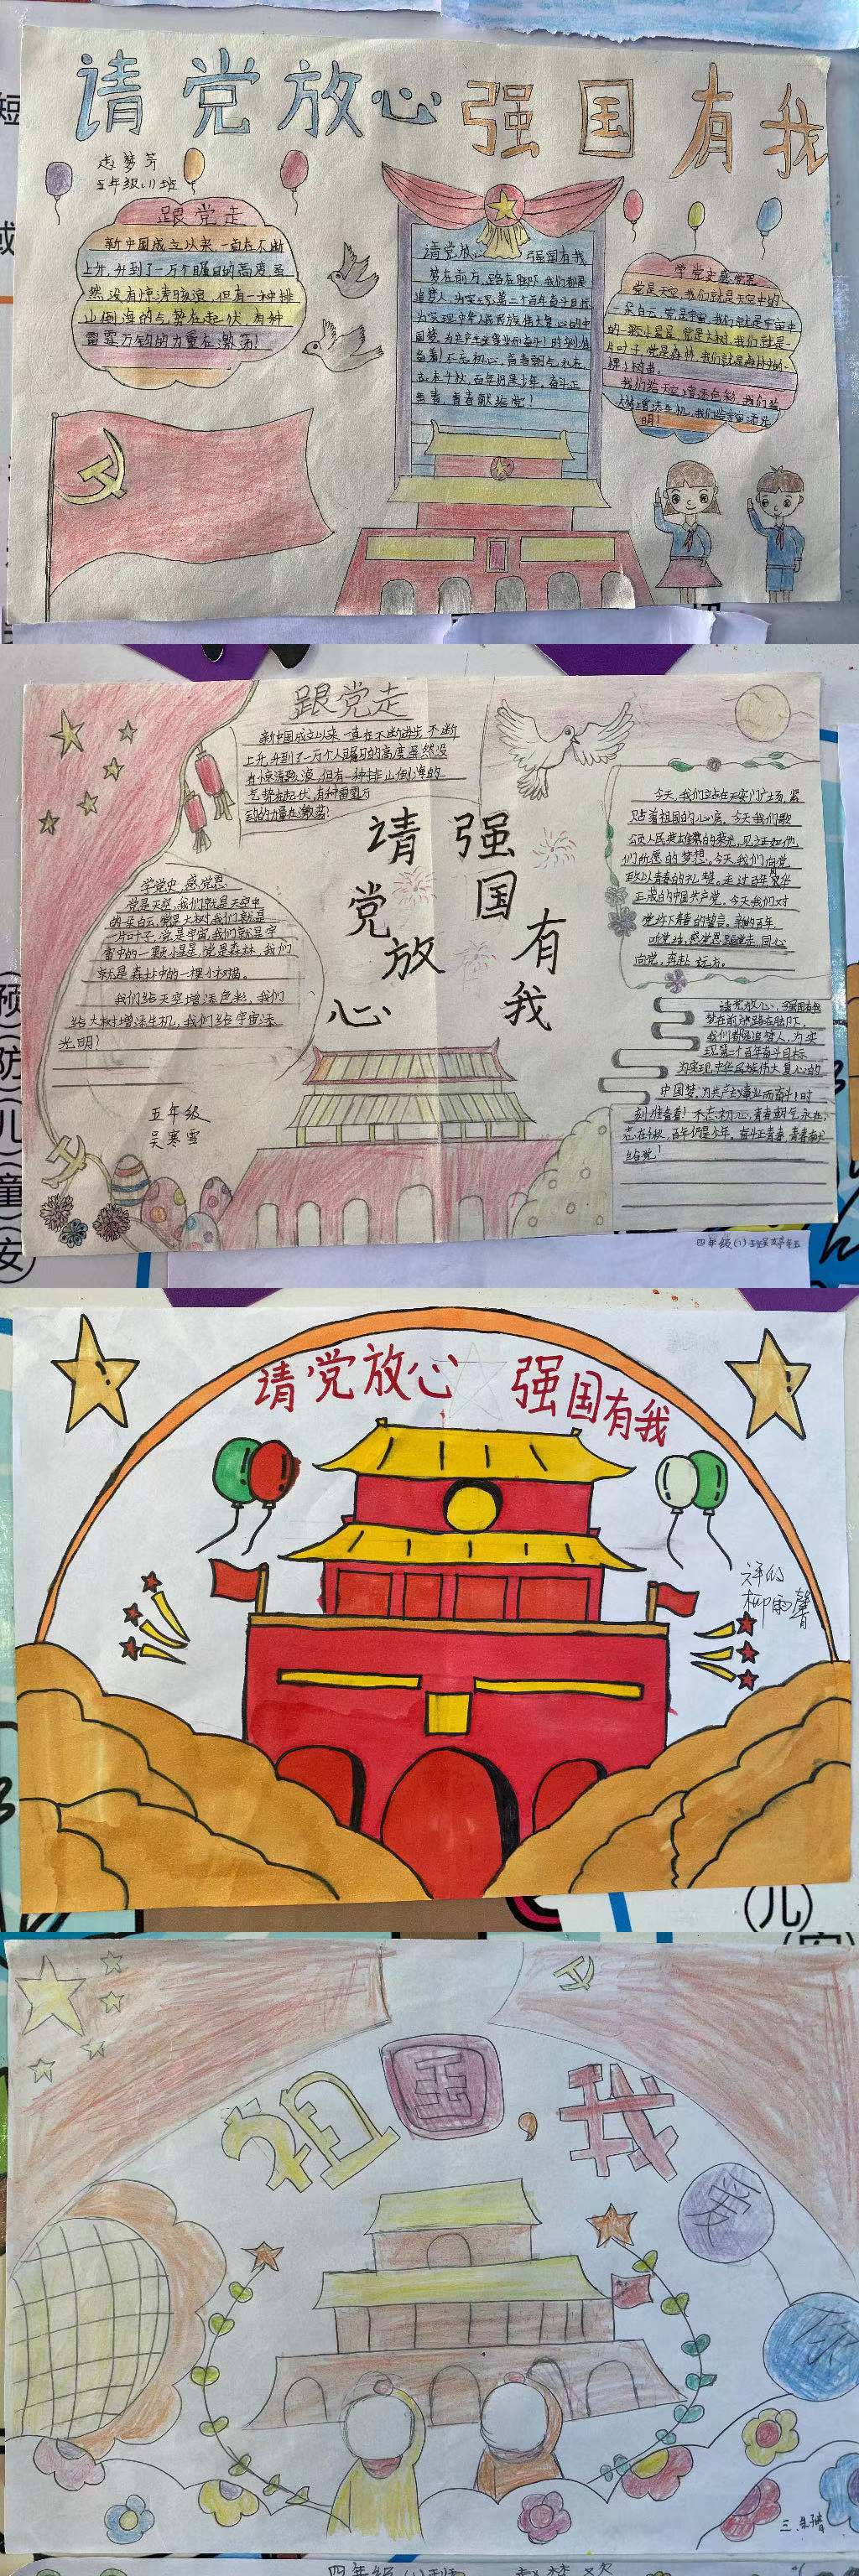 请党放心 强国有我
五年级(1)班
跟党走
新中国成立以来,一直在不断
上升,升到了一万个瞩目的高度,虽
然没有惊涛骇浪,但有一种排
山倒海的气势在起伏,有种
雷霆万钧的力量在激荡!
请党放心 强国有我
梦在前方,路在脚下,我们都是
追梦人,为实现第二个百年奋斗目标
为实现中华民族伟大复兴的中
国梦,为共产主义事业而奋斗!时刻准
备着!不忘初心,青春朝气永在
志在千秋,百年仍是少年,奋斗正
青春,青春献给党!
学党史感党恩
党是天空,我们就是天空中的
朵白云,党是宇宙,我们就是宇宙中
的一颗小星星,党是大树,我们就是一
片叶子,党是森林,我们就是森林中的一
棵小树苗。
我们给天空增添色彩,我们给
大树增添生机,我们给宇宙添光
明!
跟党走
新中国成立以来,一直在不断进步,不断
上升,升到了一万个人瞩目的高度,虽然没
有惊涛骇浪,但有一种排山倒海的
气势在起伏,有种雷霆万
钧的力量在激荡!
请党放心
强国有我
学党史,感党恩
党是天空,我们就是天空中
的一朵白云,党是大树,我们就是
一片叶子,党是宇宙,我们就是宇
宙中的一颗小星星,党是森林,我们
就是森林中的一棵小树苗。
我们给天空增添色彩,我们
给大树增添生机,我们给宇宙添
光明!
五年级
吴寒雪
今天,我们站在天安门广场,紧
贴着祖国的心房,今天我们歌
们所愿的梦想,今天我们向党
致以青春的礼赞,走过百年,风华
正茂的中国共产党,今天我们对
党许下青春的誓言,新的百年,
听党话,感党恩,跟党走,同心
向党,奔赴远方。
请党放心,强国有我
梦在前方,路在脚下,
我们都是追梦人,为实
现第二个百年奋斗目标
为实现中华民族伟大复兴的
中国梦,为共产主义事业而奋斗!时
刻准备着!不忘初心,青春朝气永在,
志在千秋,百年仍是少年,奋斗正青春,青春献
给党!
四年级(1)班
请党放心 强国有我
柳雨馨
祖国,我
爱
你
三.
四年级(1)班
预防儿童
(儿)